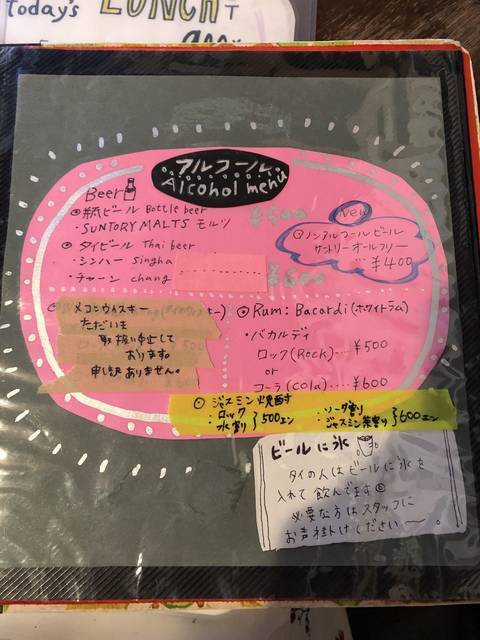 Today's LUNCH
アルコール
Alcohol menu
Beer
◎瓶ビール Bottle beer
・SUNTORY MALTS モルツ
¥500
◎タイビール Thai beer
・シンハー Singha
・チャーン chang
¥600
New
◎ノンアルコールビール
サントリーオールフリー
¥400
メコンウイスキー
ただいま
取扱い中止して
おります。
申し訳ありません。
◎Rum: Bacardi(ホワイトラム)
・バカルディ
ロック(Rock)...¥500
or
コーラ(cola)....¥600
◎ジャスミン焼酎
・ロック
水割り }500エン
・ソーダ割り
ジャスミン茶割り }600エン
ビールに氷
タイの人はビールに氷を
入れて飲んでます☺
必要な方はスタッフに
お声掛けください〜。